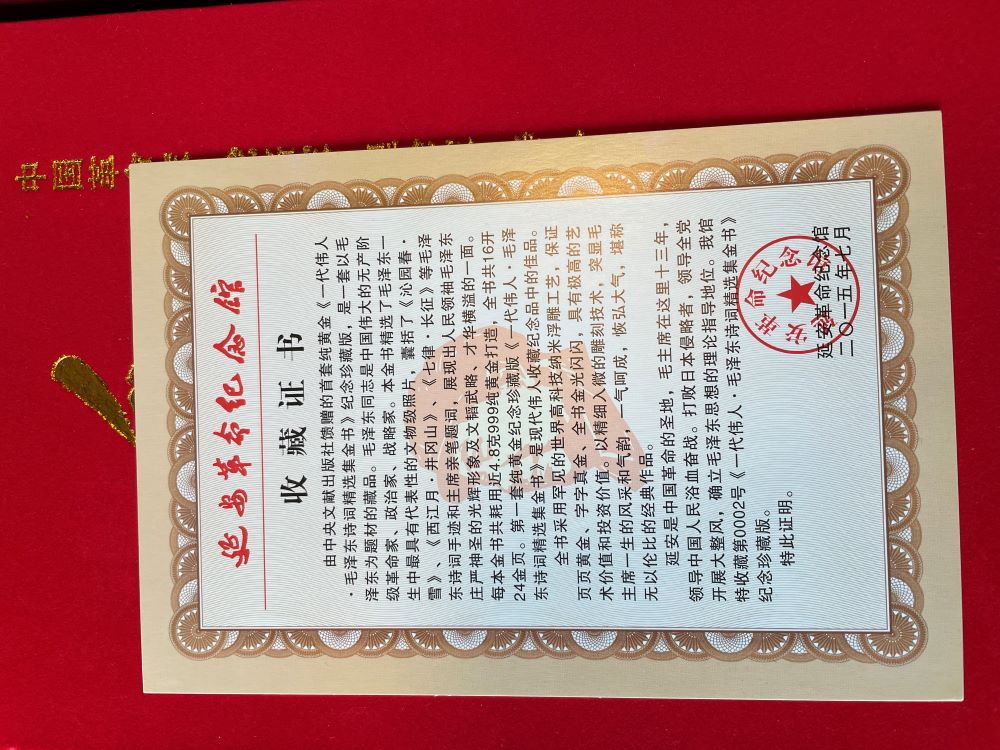 延安革命纪念馆
收藏证书
由中央文献出版社馈赠的首套纯黄金《一代伟人
·毛泽东诗词精选集金书》纪念珍藏版，是一套以毛
泽东为题材的藏品。毛泽东同志是中国伟大的无产阶
级革命家、政治家、战略家。本金书精选了毛泽东一
生中最具有代表性的文物级照片，囊括了《沁园春·
雪》、《西江月·井冈山》、《七律·长征》等毛泽
东诗词手迹和主席亲笔题词，展现出人民领袖毛泽东
庄严神圣的光辉形象及文韬武略、才华横溢的一面。
每本金书共耗用近4.8克999纯黄金打造，全书共16开
24金页。第一套纯黄金纪念珍藏版《一代伟人·毛泽
东诗词精选集金书》是现代伟人收藏纪念品中的佳品。
全书采用罕见的世界高科技纳米浮雕工艺，保证
页页黄金、字字真金、全书金光闪闪，具有极高的艺
术价值和投资价值。以精细入微的雕刻技术，突显毛
主席一生的风采和气韵，一气呵成，恢弘大气，堪称
无以伦比的经典作品。
延安是中国革命的圣地，毛主席在这里十三年，
领导中国人民浴血奋战。打败日本侵略者，领导全党
开展大整风，确立毛泽东思想的理论指导地位。我馆
特收藏第0002号《一代伟人·毛泽东诗词精选集金书》
纪念珍藏版。
特此证明。
延安革命纪念馆
二〇一五年七月
延安革命纪念馆
中国